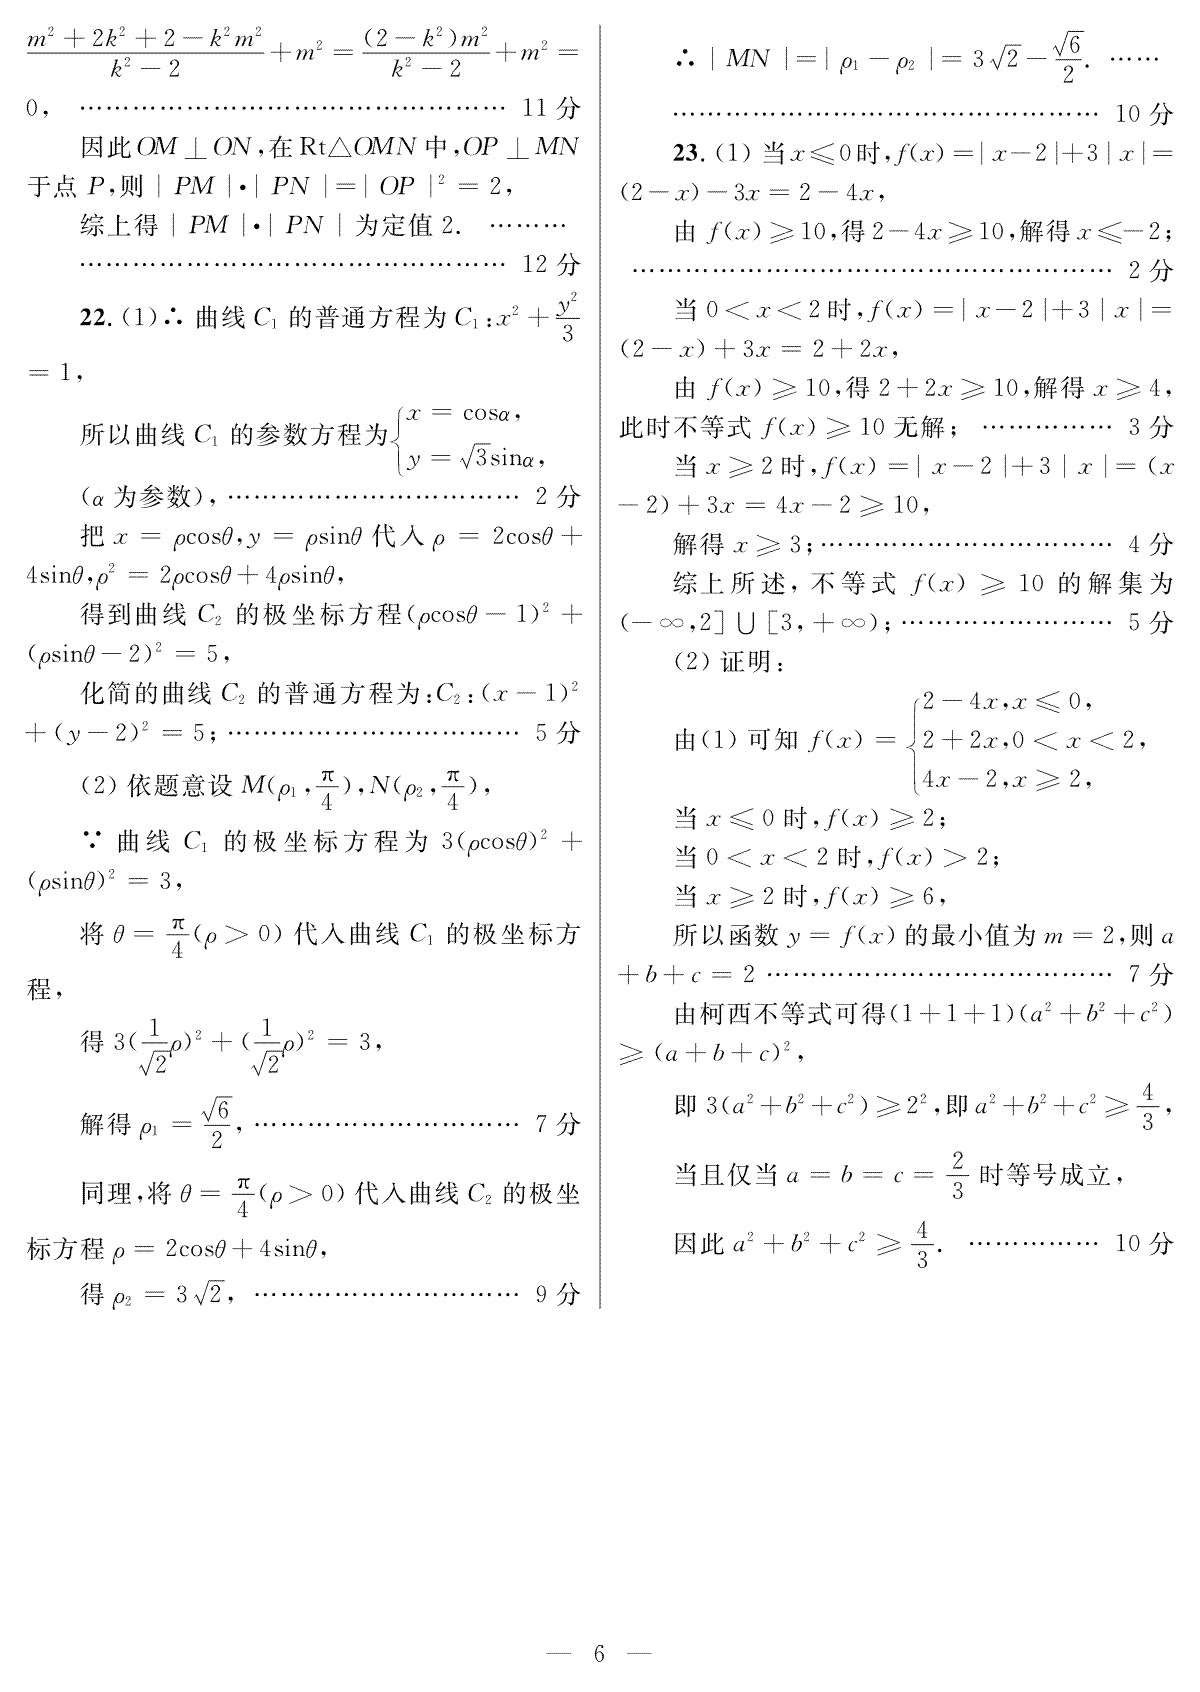 (m² + 2k² + 2 − k²m²)/(k² − 2) + m² = ((2 − k²)m²)/(k² − 2) + m² =
0， ………………………………………… 11 分
因此OM ⊥ ON,在 Rt△OMN 中,OP ⊥ MN
于点 P,则 | PM |•| PN |=| OP |² = 2,
综上得 | PM |•| PN | 为定值 2. ………
………………………………………… 12 分
22. (1)∴ 曲线 C₁ 的普通方程为 C₁:x² + y²/3
= 1,
所以曲线 C₁ 的参数方程为{x = cosα, y = √3sinα,
(α 为参数), …………………………… 2 分
把 x = ρcosθ,y = ρsinθ 代入 ρ = 2cosθ +
4sinθ,ρ² = 2ρcosθ + 4ρsinθ,
得到曲线 C₂ 的极坐标方程(ρcosθ − 1)² +
(ρsinθ − 2)² = 5,
化简的曲线 C₂ 的普通方程为:C₂: (x − 1)²
+ (y − 2)² = 5; …………………………… 5 分
(2) 依题意设 M(ρ₁, π/4),N(ρ₂, π/4),
∵ 曲线 C₁ 的极坐标方程为 3(ρcosθ)² +
(ρsinθ)² = 3,
将 θ = π/4(ρ > 0) 代入曲线 C₁ 的极坐标方
程,
得 3(1/√2 ρ)² + (1/√2 ρ)² = 3,
解得 ρ₁ = √6/2, ………………………… 7 分
同理,将 θ = π/4(ρ > 0) 代入曲线 C₂ 的极坐
标方程 ρ = 2cosθ + 4sinθ,
得 ρ₂ = 3√2, ………………………… 9 分
∴ | MN |=| ρ₁ − ρ₂ |= 3√2 − √6/2. ……
………………………………………… 10 分
23. (1) 当 x ≤ 0 时,f(x) =| x − 2 |+ 3 | x |=
(2 − x) − 3x = 2 − 4x,
由 f(x) ≥ 10,得 2 − 4x ≥ 10,解得 x ≤ −2;
……………………………………………… 2 分
当 0 < x < 2 时,f(x) =| x − 2 |+ 3 | x |=
(2 − x) + 3x = 2 + 2x,
由 f(x) ≥ 10,得 2 + 2x ≥ 10,解得 x ≥ 4,
此时不等式 f(x) ≥ 10 无解; …………… 3 分
当 x ≥ 2 时,f(x) =| x − 2 |+ 3 | x |= (x
− 2) + 3x = 4x − 2 ≥ 10,
解得 x ≥ 3; …………………………… 4 分
综上所述, 不等式 f(x) ≥ 10 的解集为
(− ∞,2] ∪ [3, + ∞); …………………… 5 分
(2) 证明:
由(1) 可知 f(x) = {2 − 4x,x ≤ 0, 2 + 2x,0 < x < 2, 4x − 2,x ≥ 2,
当 x ≤ 0 时,f(x) ≥ 2;
当 0 < x < 2 时,f(x) > 2;
当 x ≥ 2 时,f(x) ≥ 6,
所以函数 y = f(x) 的最小值为 m = 2,则 a
+ b + c = 2 ………………………………… 7 分
由柯西不等式可得(1 + 1 + 1)(a² + b² + c²)
≥ (a + b + c)²,
即 3(a² + b² + c²) ≥ 2²,即 a² + b² + c² ≥ 4/3,
当且仅当 a = b = c = 2/3 时等号成立,
因此 a² + b² + c² ≥ 4/3. …………… 10 分
— 6 —